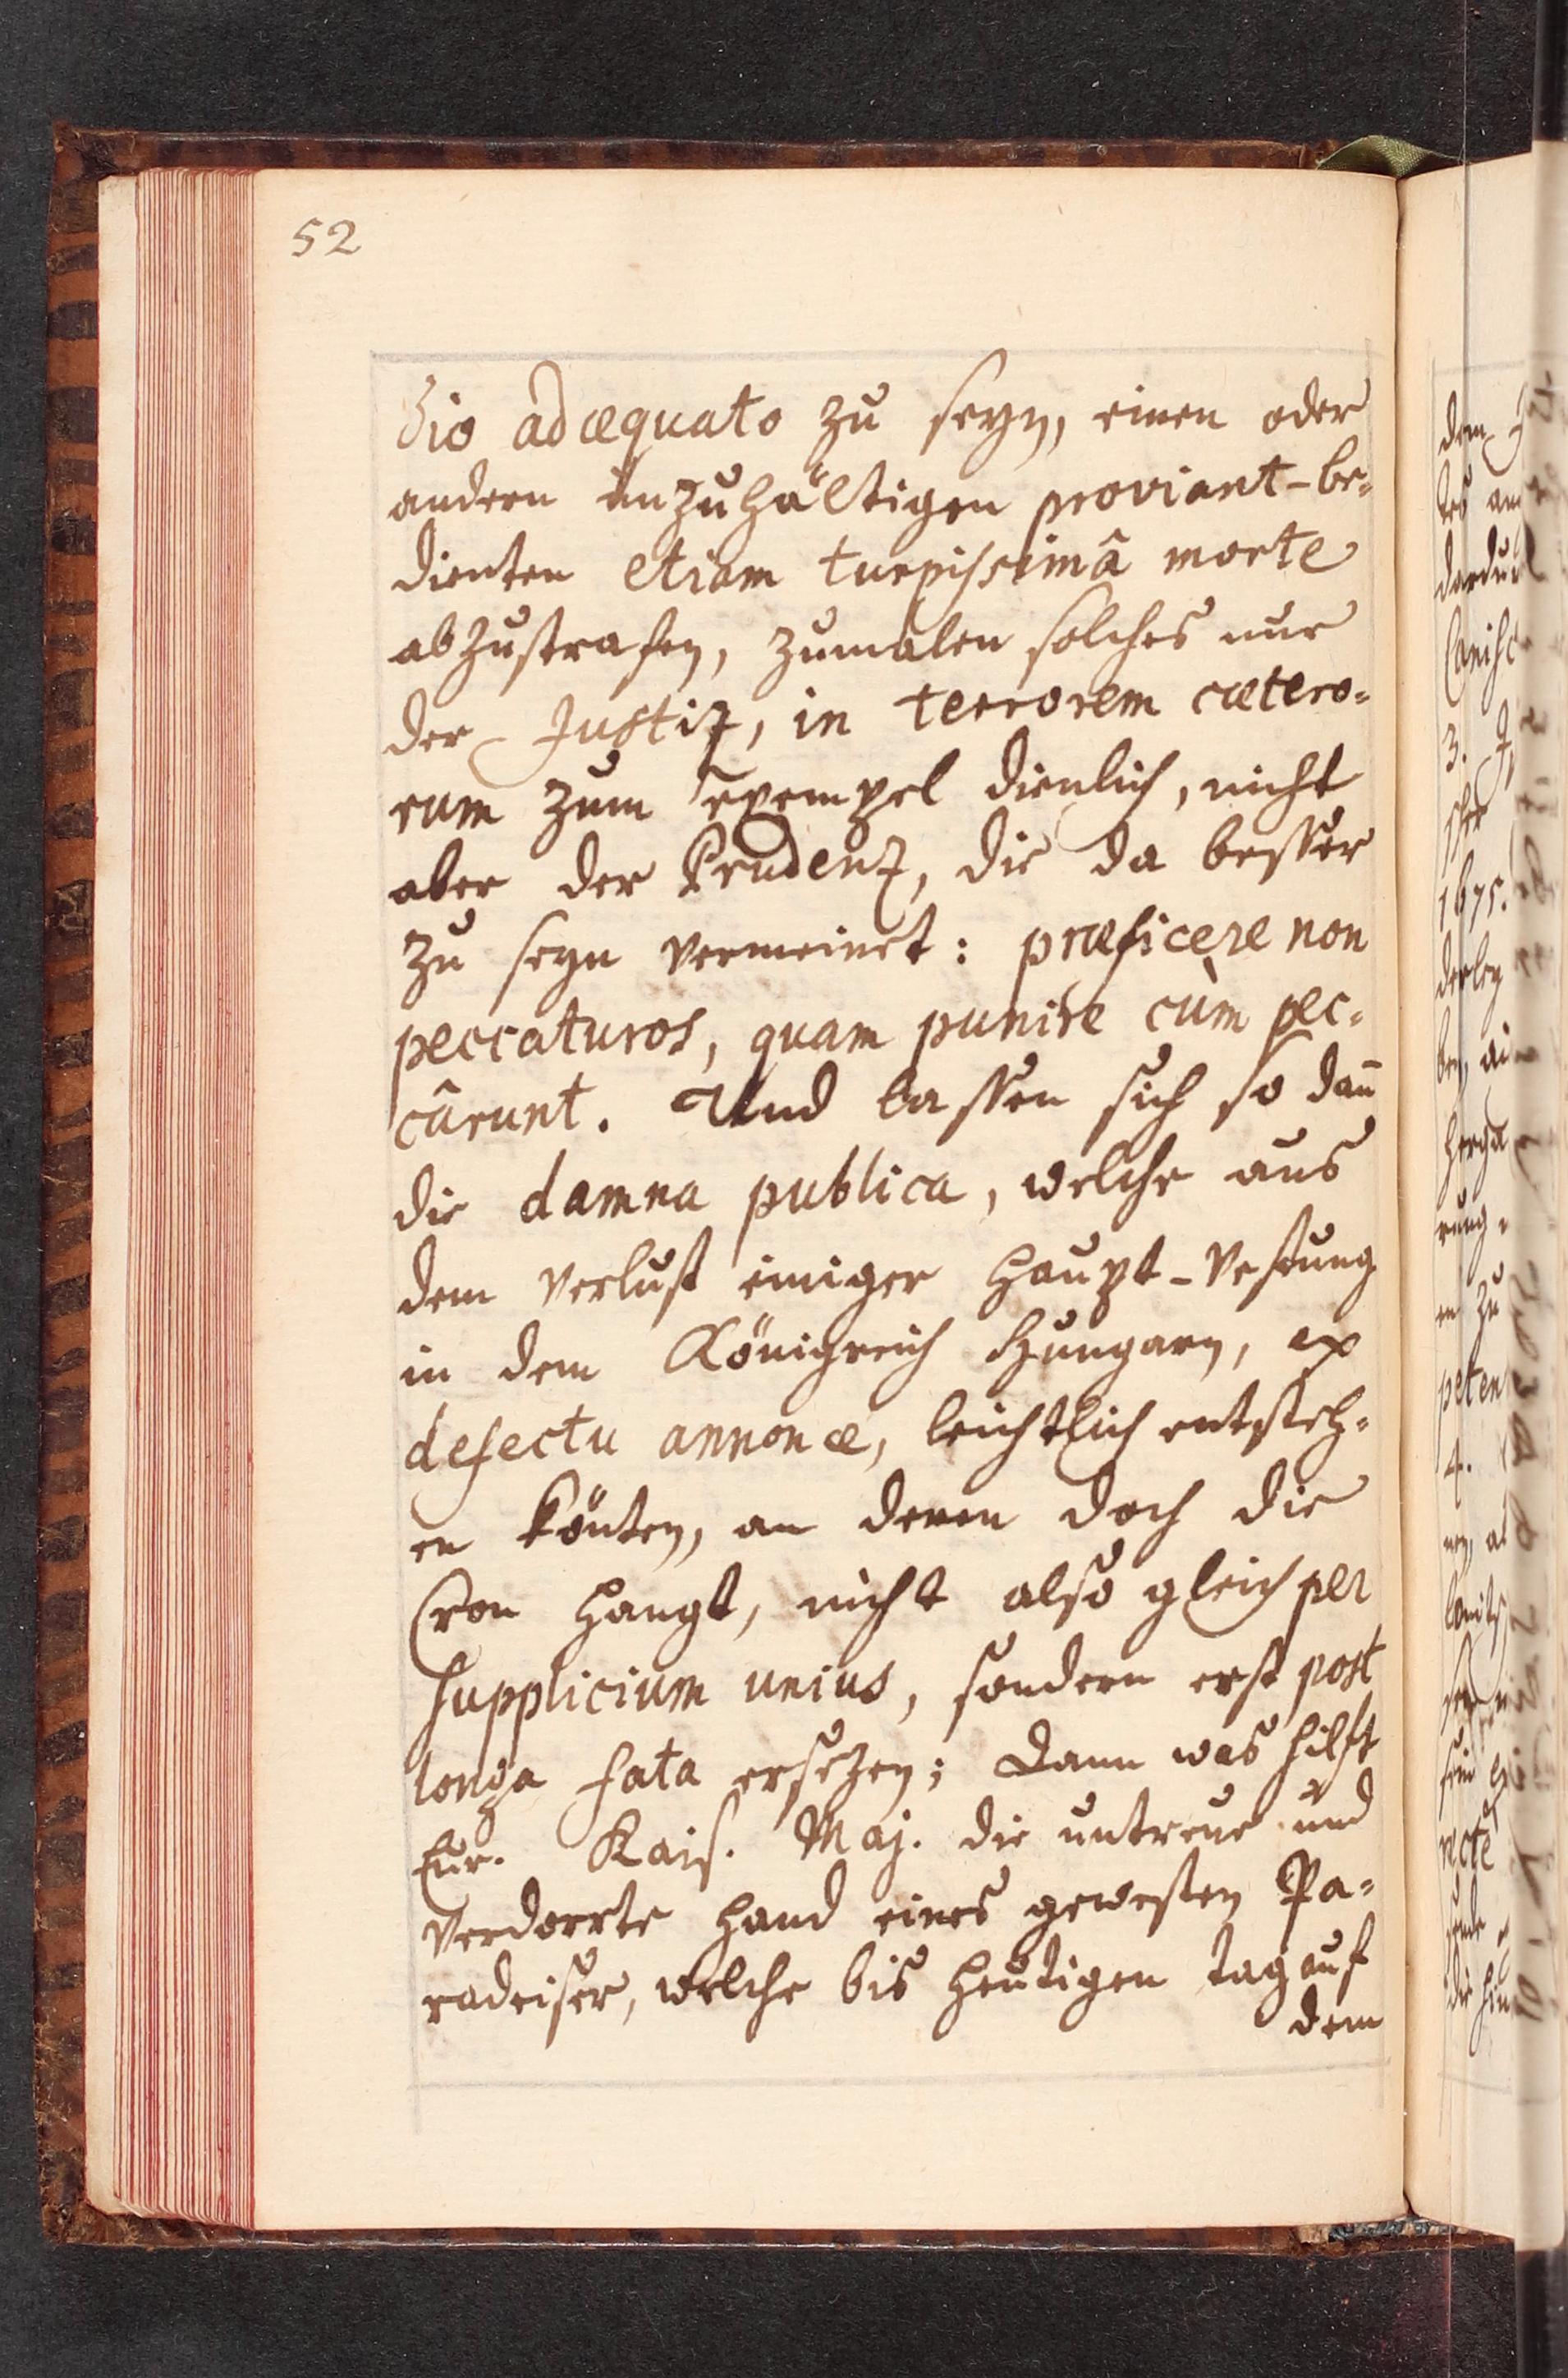 52
dio adæquato zu seyn, einen oder
andern unzuhältigen proviant-be=
dienten etiam turpissimâ morte
abzustrafen, zumalen solches nur
der Justiz, in terrorem cætero=
rum zum exempel dienlich, nicht
aber der Prudenz, die da besser
zu seyn vermeinet: præficere non
peccaturos, quam punire cùm pec=
cârunt. Und lassen sich so dañ
die damna publica, welche aus
dem verlust einiger Haupt-Vestung
in dem Königreich Hungarn, ex
defectu annonæ, leichtlich entsteh=
en könten, an denen doch die
Cron hangt, nicht also gleich per
supplicium unius, sondern erst post
longa fata ersezen; Dann was hilft
Eur. Kais. Maj. die untreue und
verdorrte hand eines gewesten Pa=
radeiser, welche bis heutigen tag auf
dem